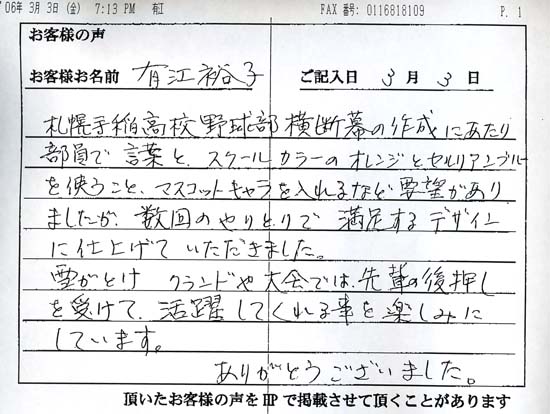 '06年 3月 3日(金) 7:13 PM 有江 FAX 番号: 0116818109 P. 1
お客様の声
お客様お名前 有江裕子 ご記入日 3 月 3 日
札幌手稲高校野球部横断幕の作成にあたり
部員で言葉と、スクールカラーのオレンジとセルリアンブルー
を使うこと、マスコットキャラを入れるなど要望があり
ましたが、数回のやりとりで満足するデザイン
に仕上げていただきました。
雪がとけ グランドや大会では、先輩の後押し
を受けて、活躍してくれる事を楽しみに
しています。
ありがとうございました。
頂いたお客様の声をHPで掲載させて頂くことがあります